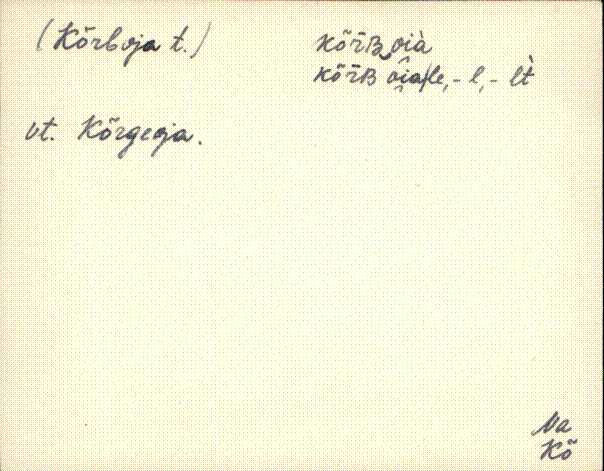 (Kõrboja t.)
kȭrʙ‿oi̯à
kȭrʙ oi̯a/le, -l, -lt̀
vt. Kõrgeoja.
Va
Kõ